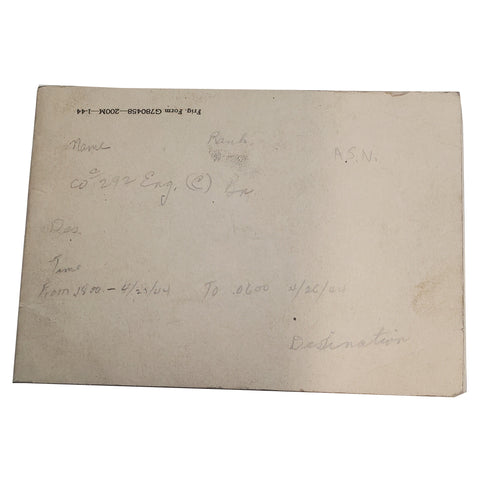 Frig. Form G780458—200M—1-44
Name Rank A.S.N.
Co a 292 Eng. (C) Bn
Des.
Time
From 1800 - 4/25/44 To 0600 4/26/44
Destination